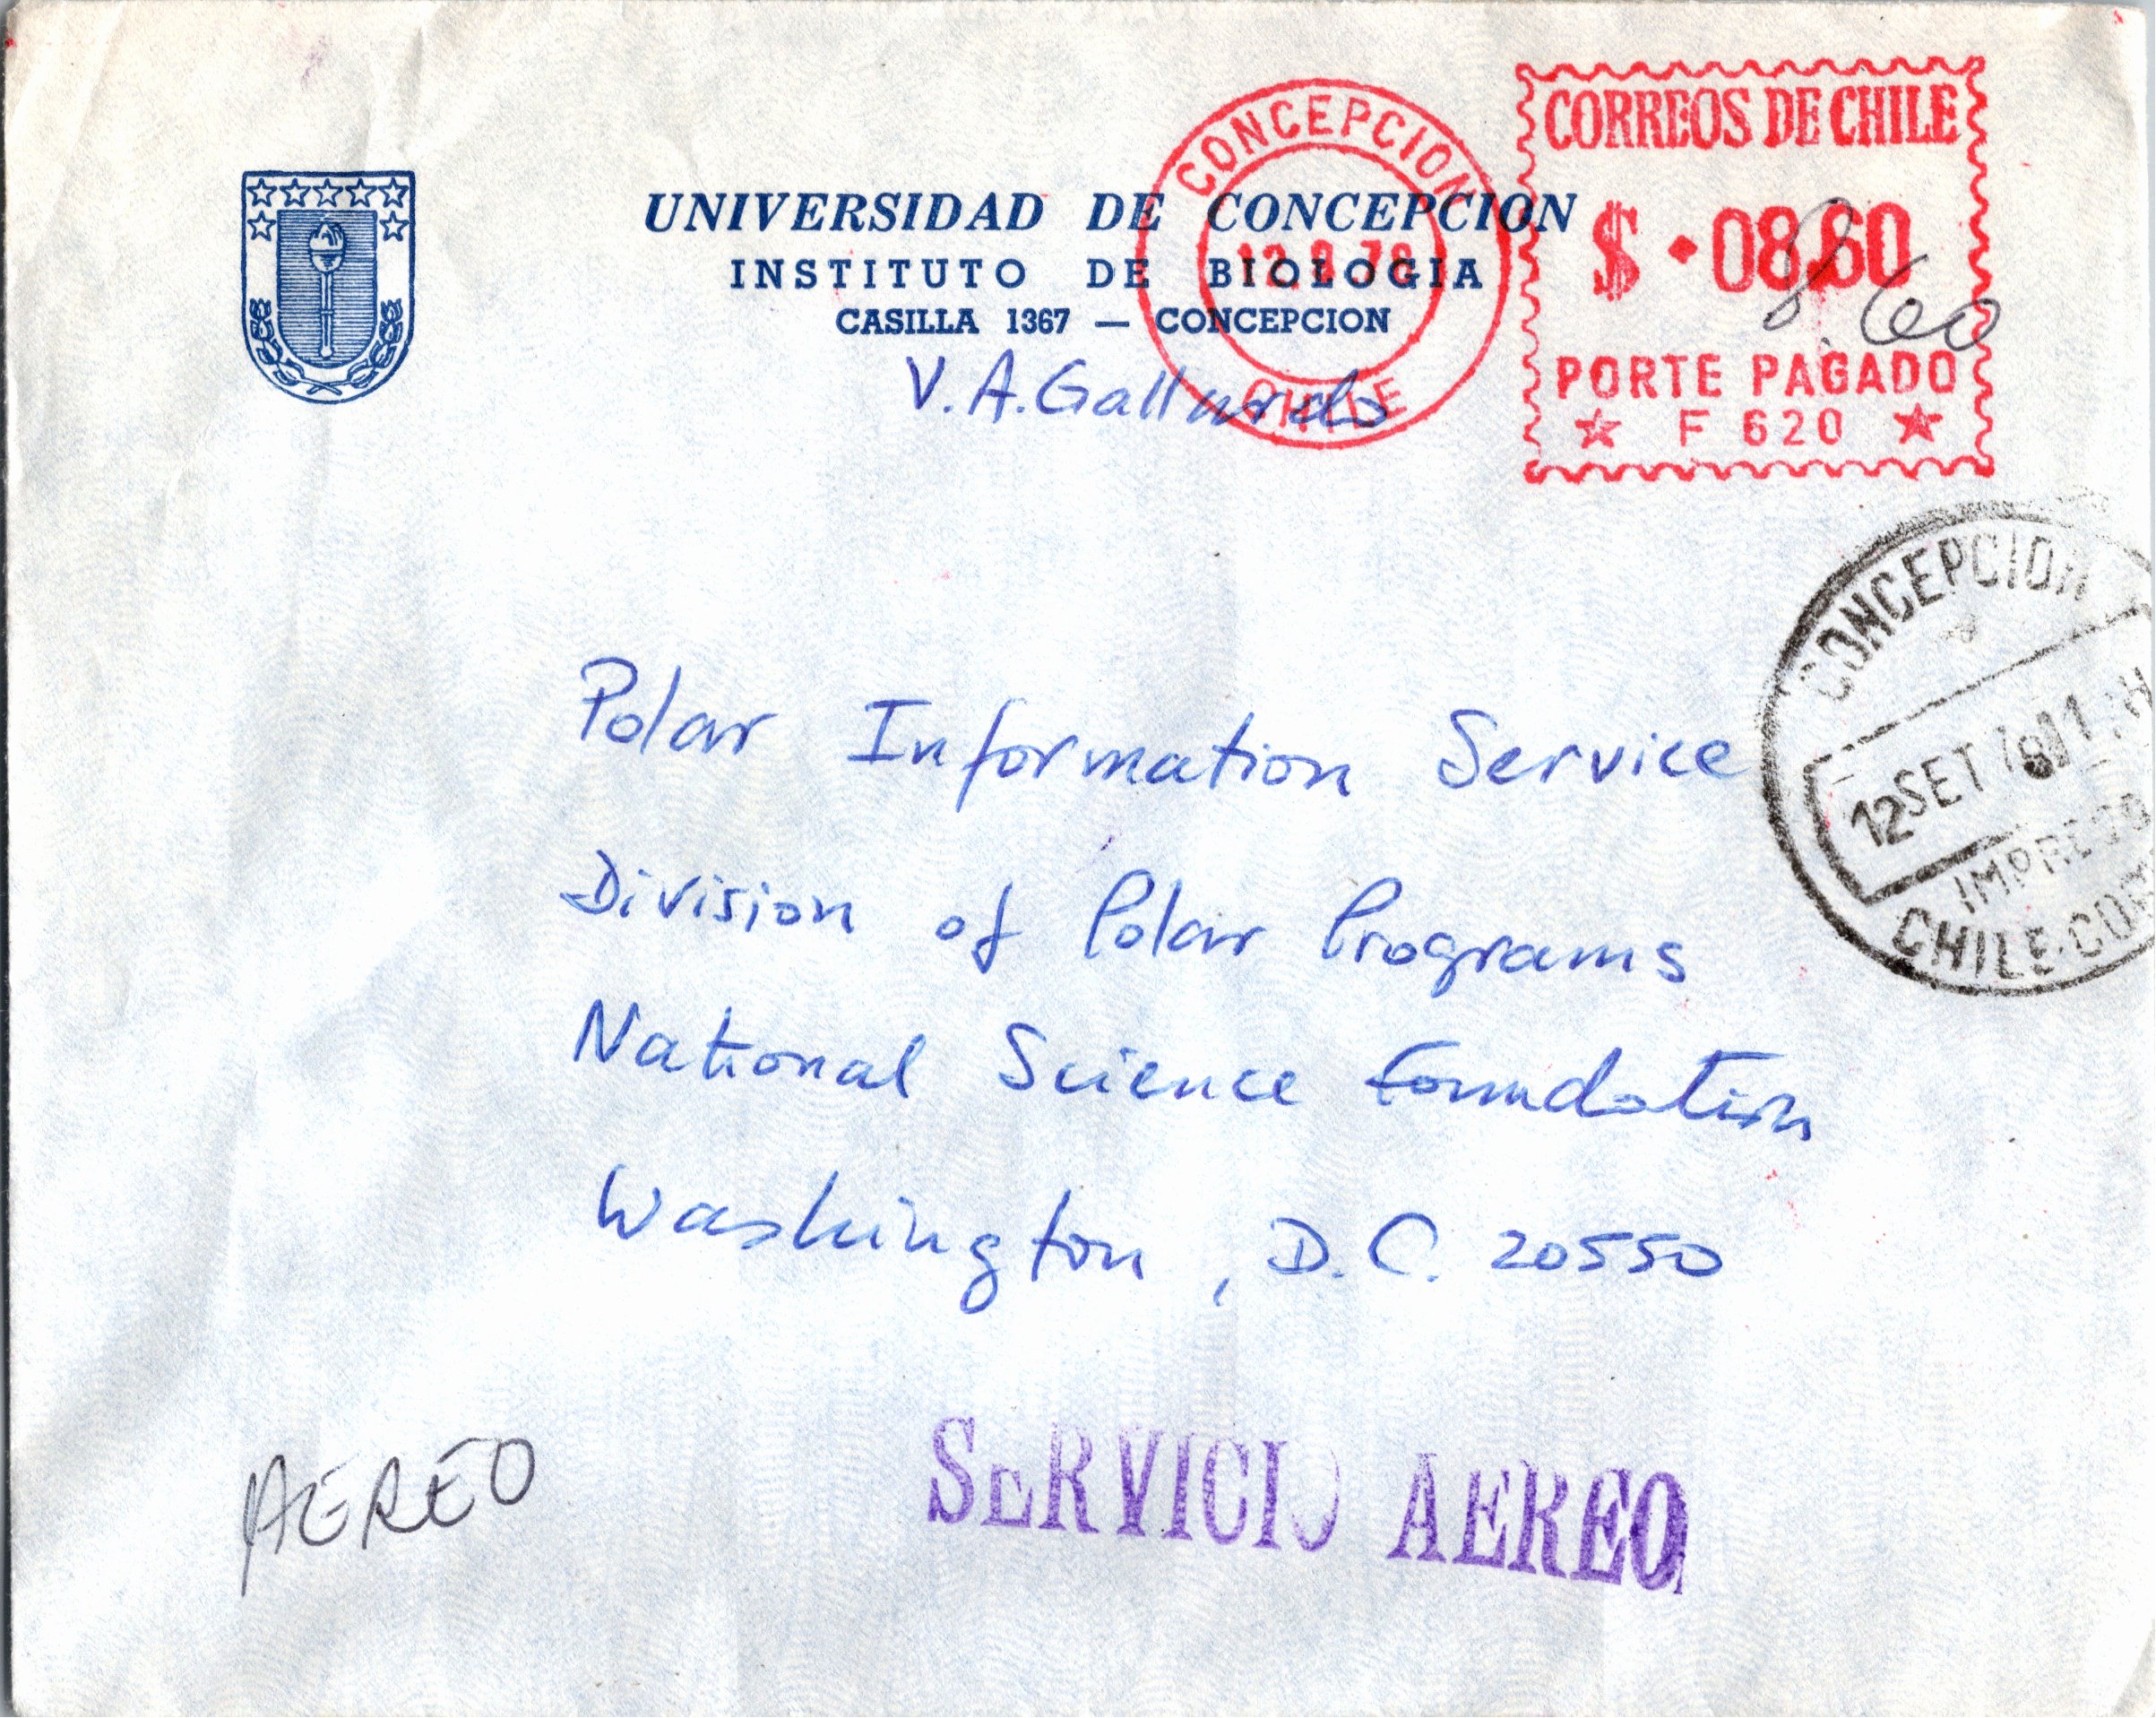 CORREOS DE CHILE
$ 08.60
8.60
PORTE PAGADO
F 620
CONCEPCION
CHILE
UNIVERSIDAD DE CONCEPCION
INSTITUTO DE BIOLOGIA
CASILLA 1367 — CONCEPCION
V.A. Gallardo
CONCEPCION
12 SET
CHILE
Polar Information Service
Division of Polar Programs
National Science Foundation
Washington, D.C. 20550
AEREO
SERVICIO AEREO